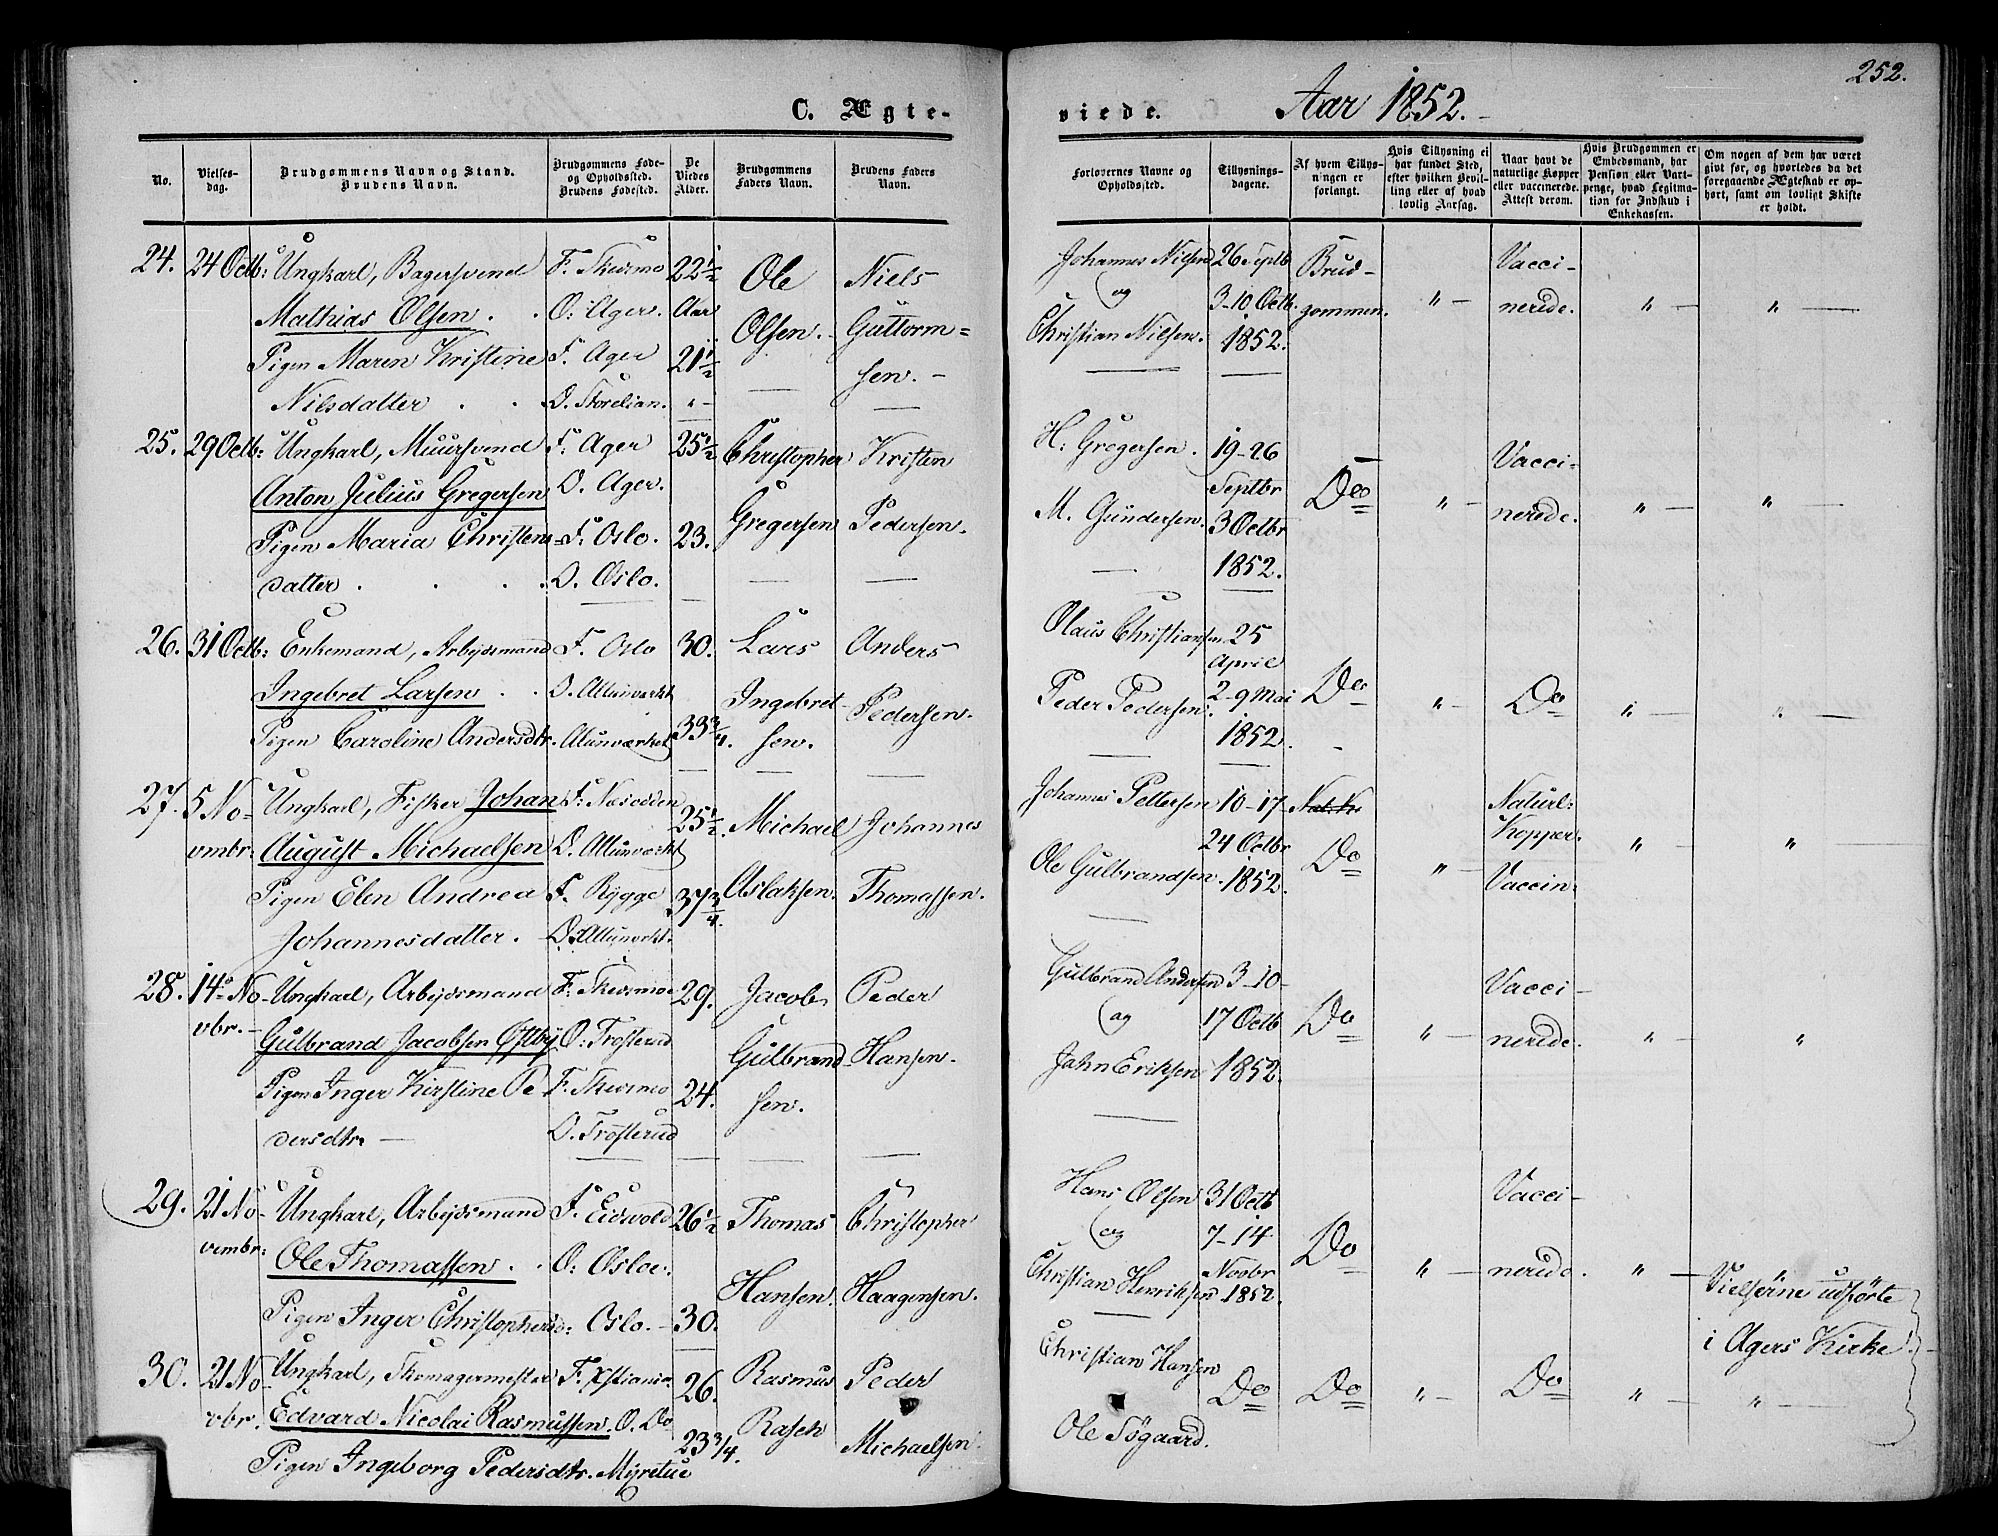 252.
C. Ægte-
viede. Aar 1852.
No.
Vielses-
dag.
Brudgommens Navn og Stand.
Brudens Navn.
Brudgommens Føde-
og Opholdssted.
Brudens Fødested.
De
Viedes
Alder.
Brudgommens
Faders Navn.
Brudens Faders
Navn.
Forlovernes Navne og
Opholdssted.
Tillysnings-
dagene.
Af hvem Tillys-
ningen er
forlangt.
Hvis Tillysning ei
har fundet Sted,
efter hvilken Bevil-
ling eller af hvad
lovlig Aarsag.
Naar havt de
naturlige Kopper
eller vaccinerede.
Attest derom.
Hvis Brudgommen er
Embedsmand, har
Pension eller Vart-
penge, hvad Legitima-
tion for Indskud i
Enkekassen.
Om nogen af dem har været
givt før, og hvorledes da det
foregaaende Ægteskab er op-
hørt, samt om lovligt Skifte
er holdt.
24. 24 Octb:
Ungkarl, Bagersvend
Mathias Olsen . .
Pigen Maren Kristine
Nilsdatter . .
F. Skedsmo
O: Ager.
F. Ager
O. Storelian.
22½
Aar
21½
"-
Ole
Olsen.
Niels
Guttorm=
sen.-
Johannes Nilsen
og
Christian Nilsen.
26 Septb
3-10 Octb.
1852.
Brud-
gommen.
" -
Vacci-
nerede.
" -
" -
25. 29 Octb:
Ungkarl, Muursvend
Anton Julius Gregersen
Pigen Maria Christens-
datter . . . .
F. Ager
O. Ager.
F. Oslo.
O. Oslo.
25½
23.
Christopher
Gregersen
Kristen
Pedersen.
H: Gregersen.
M. Gundersen.
19-26
Septbr
3 Octbr
1852.
Do
" -
Vacci-
nerede.
" -
" -
26. 31 Octb:
Enkemand, Arbejdsmand
Ingebret Larsen . .
Pigen Caroline Andersdtr.
F. Oslo
O. Allunværket
Alunværket
30.
33¾.
Lars
Ingebret-
sen.
Anders
Pedersen.
Olaus Christiansen
Peder Pedersen.
25
April
2-9 Mai
1852.
Do
" -
Do
" -
" -
27. 5 No-
vmbr:
Ungkarl, Fisker Johan
August Michaelsen
Pigen Elen Andrea
Johannesdatter.
F. Nesodden
O. Allunværkt
F. Rygge
O. Allunværkt.
25½.
37¾.
Michael
Aslaksen.
Johannes
Thomassen.
Johannes Pettersen
Ole Gulbrandsen.
10-17-
24 Octbr
1852.
Do
" -
Naturl:
Kopper.
Vaccin:
" -
"
28. 14 No-
vbr.-
Ungkarl, Arbejdsmand
Gulbrand Jacobsen Østby
Pigen Inger Kirstine Pe-
dersdtr. -
F. Skedsmoe
O: Trosterud
F. Skedsmo
O. Trosterud
29.
24.
Jacob
Gulbrand-
sen.
Peder
Hansen.
Gulbrand Andersen
og
John Eriksen
3-10-
17 Octb
1852.
Do
" -
Vacci-
nerede.
" -
"
29. 21 No-
vembr:
Ungkarl, Arbejdsmand
Ole Thomassen. . .
Pigen Inger Christophersd:
F. Eidsvold
O: Osloe:
Oslo. -
26½
30.
Thomas
Hansen.
Christopher
Haagensen.
Hans Olsen
og
Christian Henriksen
31 Octb
7-14
Novbr
1852.
Do
" -
Vacci-
nerede.
" -
Vielserne udførte
i Agers Kirke.
30. 21 No-
vbr.
Ungkarl, Skomagermester
Edvard Nicolai Rasmussen.
Pigen Ingeborg Pedersdtr.
F. Xstiania.
O. Do
26.
23¾.
Rasmus
Rasch
Peder
Michaelsen.
Christian Hansen
Ole Søgaard.
Do
Do
" -
Do
" -
" -